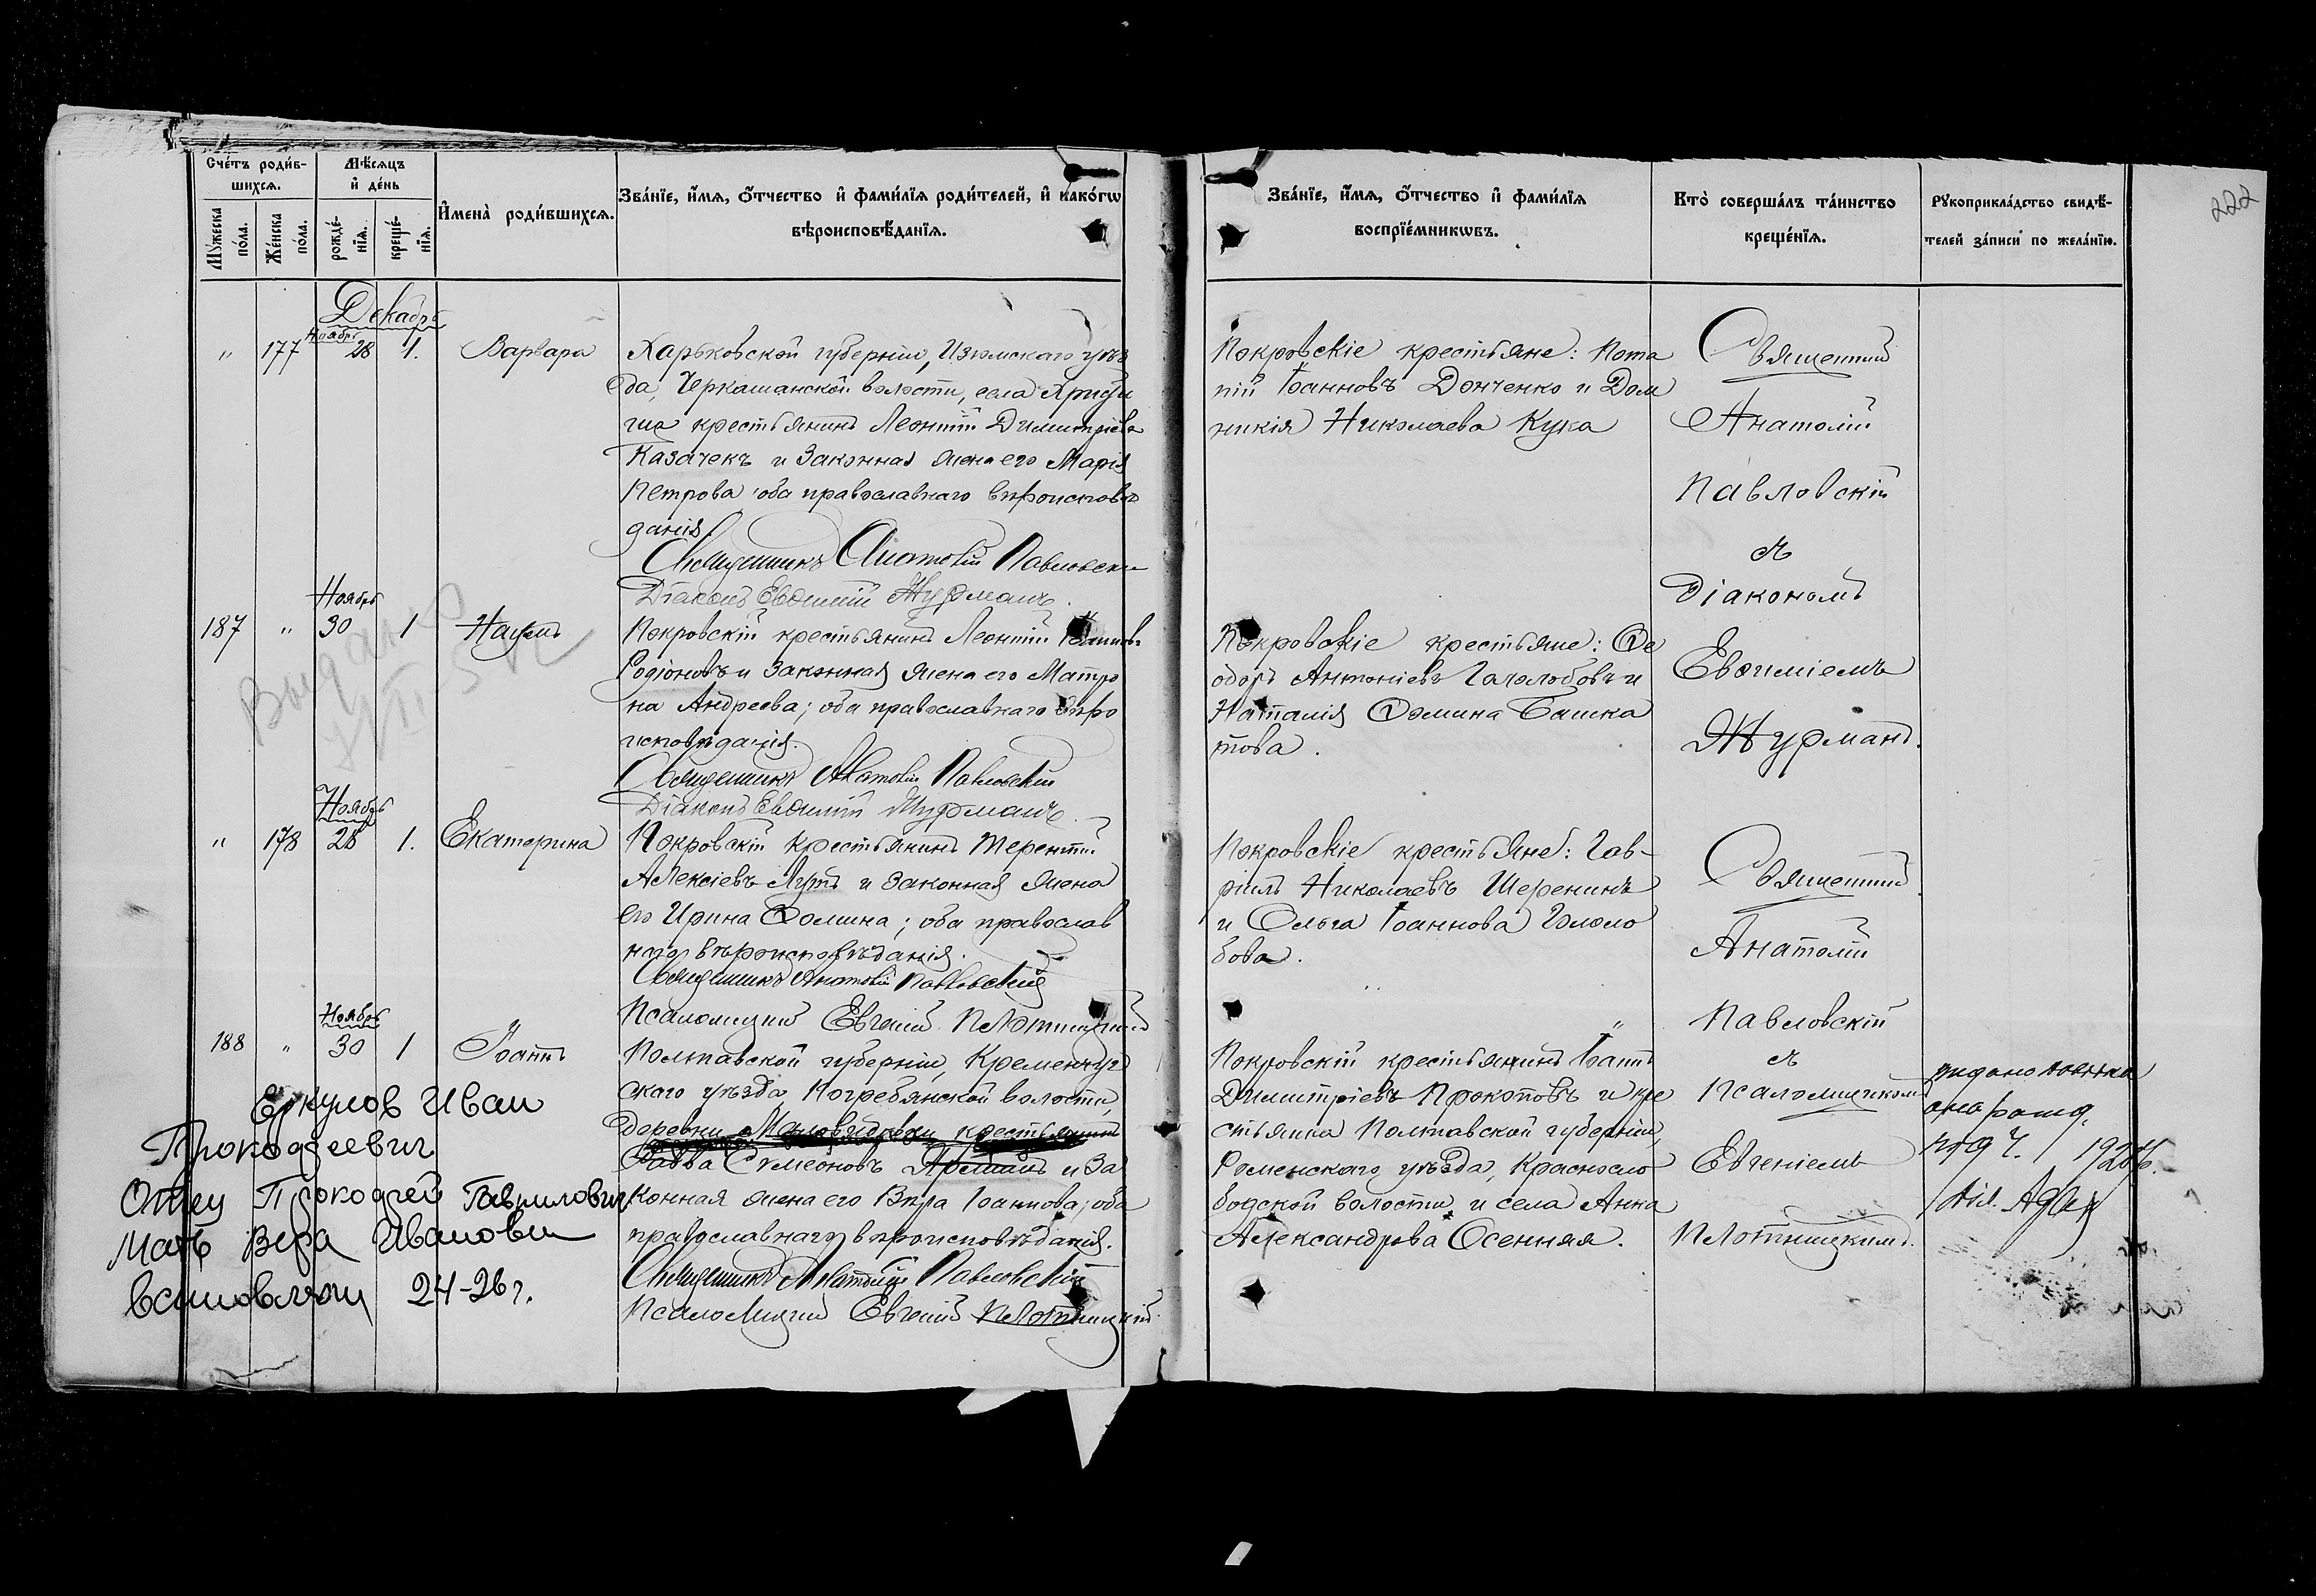 222
Счетъ родив-
шихся.
Мѣсяцъ
и день
Мужеска
пола.
Женска
пола.
рожде-
нія.
креще-
нія.
Имена родившихся.
Званіе, имя, отчество и фамилія родителей, и какогω
вѣроисповѣданія.
Званіе, имя, отчество и фамилія
воспріемникωвъ.
Кто совершалъ таинство
крещенія.
Рукоприкладство свидѣ-
телей записи по желанію.
Декабрь
Ноябрь
" 177 28 1. Варвара
Харьковской губерніи, Изюмскаго уѣз
да, Черкашанской волости, села
крестьянинъ Леонтій Димитріевъ
Казачекъ и законная жена его Марія
Петрова оба православнаго вѣроисповѣ
данія.
Священникъ Анатолій Павловскій
Діаконъ Евѳимій Журманъ.
Покровскіе крестьяне: Пота
пій Іоанновъ Донченко и Дом
никія Николаева Кука
Священникъ
Анатолій
Павловскій
съ
Діакономъ
Евѳиміемъ
Журманъ.
Ноябрь
187 " 30 1 Наумъ
Выдано
Покровскій крестьянинъ Леонтій Іоанновъ
Родіоновъ и законная жена его Матро
на Андреева; оба православнаго вѣро
исповѣданія.
Священникъ Анатолій Павловскій
Діаконъ Евѳимій Журманъ.
Покровскіе крестьяне: Ѳе
одоръ Антоніевъ Гололобовъ и
Наталія Ѳомина Башка
това.
Ноябрь
" 178 28 1. Екатерина
Покровскій крестьянинъ Терентій
Алексіевъ и законная жена
его Ирина Ѳомина; оба православ
наго вѣроисповѣданія.
Священникъ Анатолій Павловскій
Псаломщикъ Евгеній Плотницкій
Покровскіе крестьяне: Гав-
ріилъ Николаевъ Шеренинъ
и Ольга Іоаннова Гололо
бова.
Священникъ
Анатолій
Павловскій
съ
Псаломщикомъ
Евгеніемъ
Плотницкимъ.
Ноябрь
188 " 30 1 Іоаннъ
Полтавской губерніи, Кременчуг
скаго уѣзда Погребянской волости,
деревни крестьянинъ
Савва Сѵмеоновъ и за
конная жена его Вѣра Іоаннова; оба
православнаго вѣроисповѣданія.
Священникъ Анатолій Павловскій
Псаломщикъ Евгеній Плотницкій.
Покровскій крестьянинъ Іоаннъ
Димитріевъ Прокоповъ и кре
стьянка Полтавской губерніи,
Роменскаго уѣзда, Краснослo
бодской волости и села Анна
Александрова Осенняя.
Еркулов Иван
Прокофеевич
Отец Прокофей Гаврилович
Мать Вера Ивановна
24-26 г.